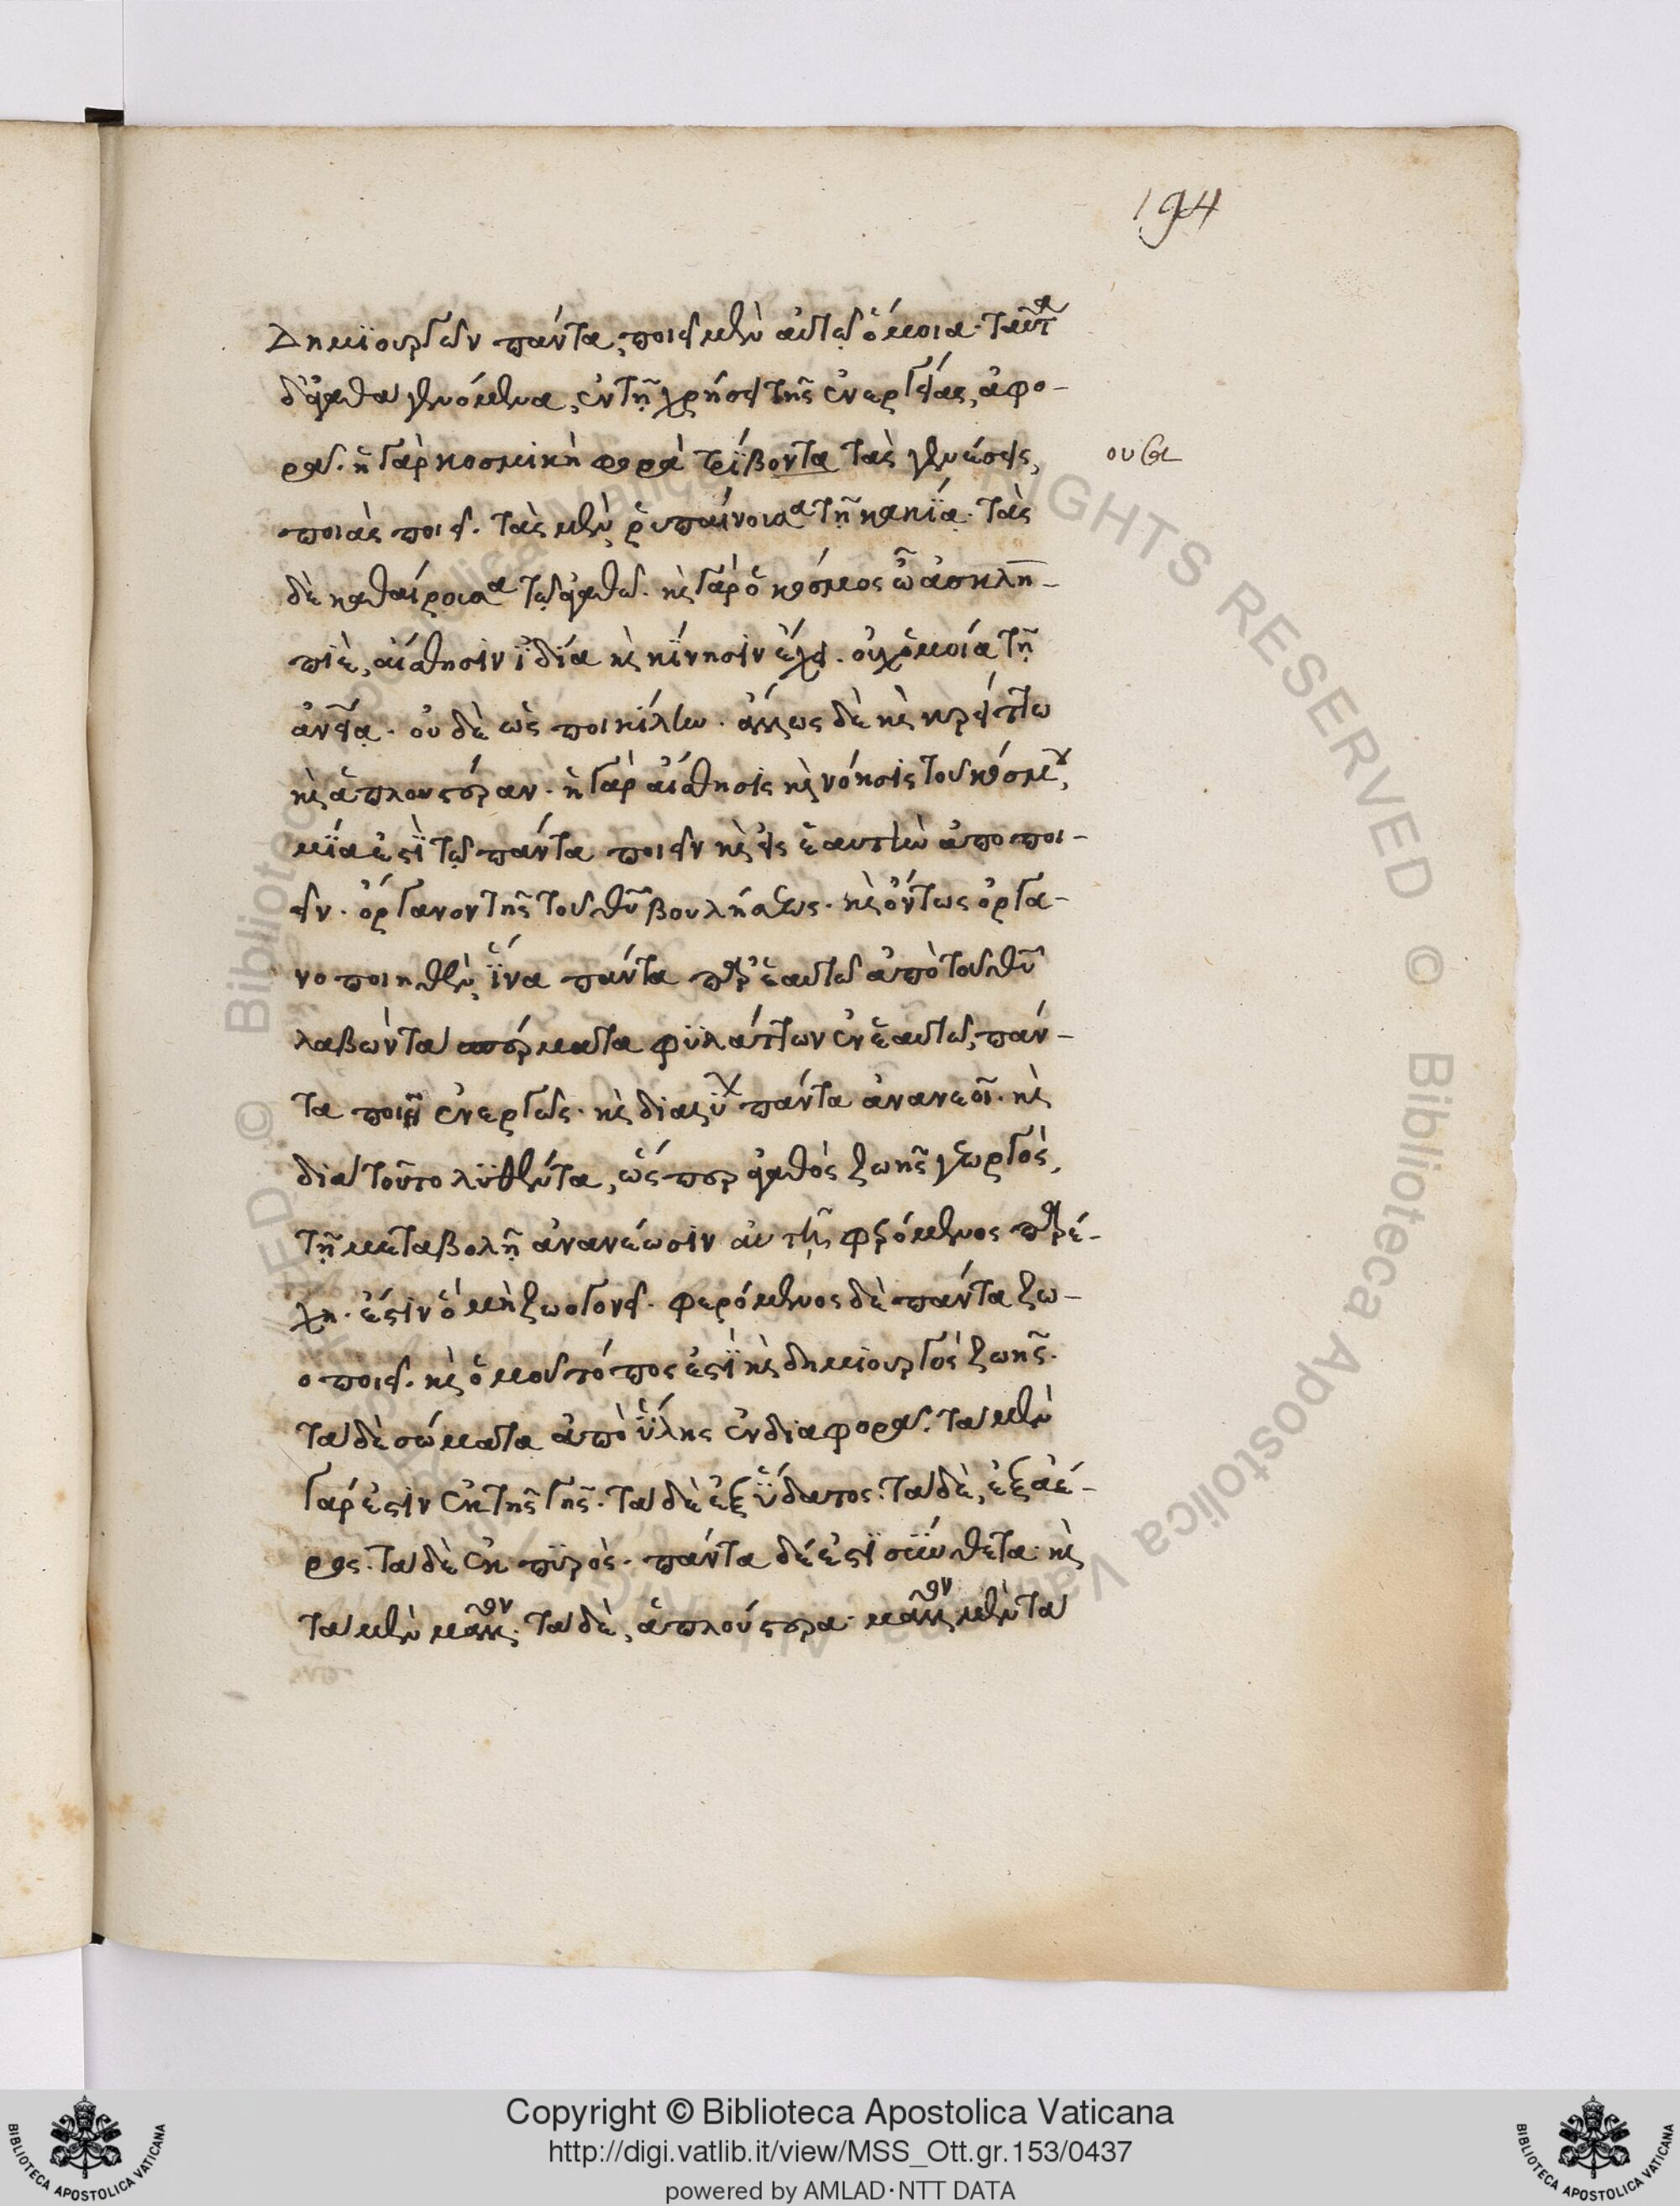 194
Δημϊουργῶν πάντα, ποιεῖ μὲν αὑτῷ ὅμοια. ταῦτα
δ' ἀγαθὰ γενόμενα, ἐν τῇ χρήσει τῆς ἐνεργείας, ἀφο-
ρᾶ. ἡ γὰρ κοσμικὴ φορὰ τρίβοντα τὰς γενέσεις,
ουσα
ποιὰς ποιεῖ. τὰς μὲν ῥυπαίνουσα τῇ κακίᾳ. τὰς
δὲ καθαίρουσα τῷ ἀγαθῷ. καὶ γὰρ ὁ κόσμος ὦ ἀσκλη-
πιὲ, αἴσθησιν ἰδία καὶ κίνησιν ἔχει. οὐχ ὁμοία τῇ
ἀνεία. οὐδὲ ὡς ποικίλην. ἄλλως δὲ καὶ κρείττω
καὶ ἁπλουστέραν. ἡ γὰρ αἴσθησις καὶ νόησις τοῦ κόσμου,
μία ἐστὶ τῷ πάντα ποιεῖν καὶ εἰς ἑαυτὴν ἀποποι-
εῖν. ὄργανον τῆς τοῦ θῦ βουλήσεως. καὶ ὄντως ὀργα-
νοποιηθὲν, ἵνα πάντα παρ' ἑαυτῷ ἀπὸ τοῦ θῦ
λαβὼντα σπέρματα φυλάττων ἐν ἑαυτῷ, πάν-
τα ποιῇ ἐνεργῶς. καὶ διαλύχ πάντα ἀνανεοῖ. καὶ
διὰ τοῦτο λυθέντα, ὥσπερ ἀγαθὸς ζωῆς γεωργὸς,
τῇ μεταβολῇ ἀνανέωσιν αὐτῆς φερόμενος παρέ-
χη. ἔστιν ὃ μὴ ζωογονεῖ. φερόμενος δὲ πάντα ζω-
οποιεῖ. καὶ ὁμοῦ τόπος ἐστὶ καὶ δημιουργὸς ζωῆς.
τὰ δὲ σώματα ἀπὸ ὕλης ἐν διαφορᾶ. τὰ μὲν
γάρ ἐστιν ἐκ τῆς γῆς. τὰ δὲ ἐξ ὕδατος. τὰ δὲ, ἐξ ἀέ-
ρος. τὰ δὲ ἐκ πυρός. πάντα δέ ἐστι σύνθετα. καὶ
τὰ μὲν μᾶλλον. τὰ δὲ, ἁπλούστερα. μᾶλλον μὲν τὰ
Copyright © Biblioteca Apostolica Vaticana
http://digi.vatlib.it/view/MSS_Ott.gr.153/0437
powered by AMLAD·NTT DATA
BIBLIOTECA APOSTOLICA VATICANA
BIBLIOTECA APOSTOLICA VATICANA